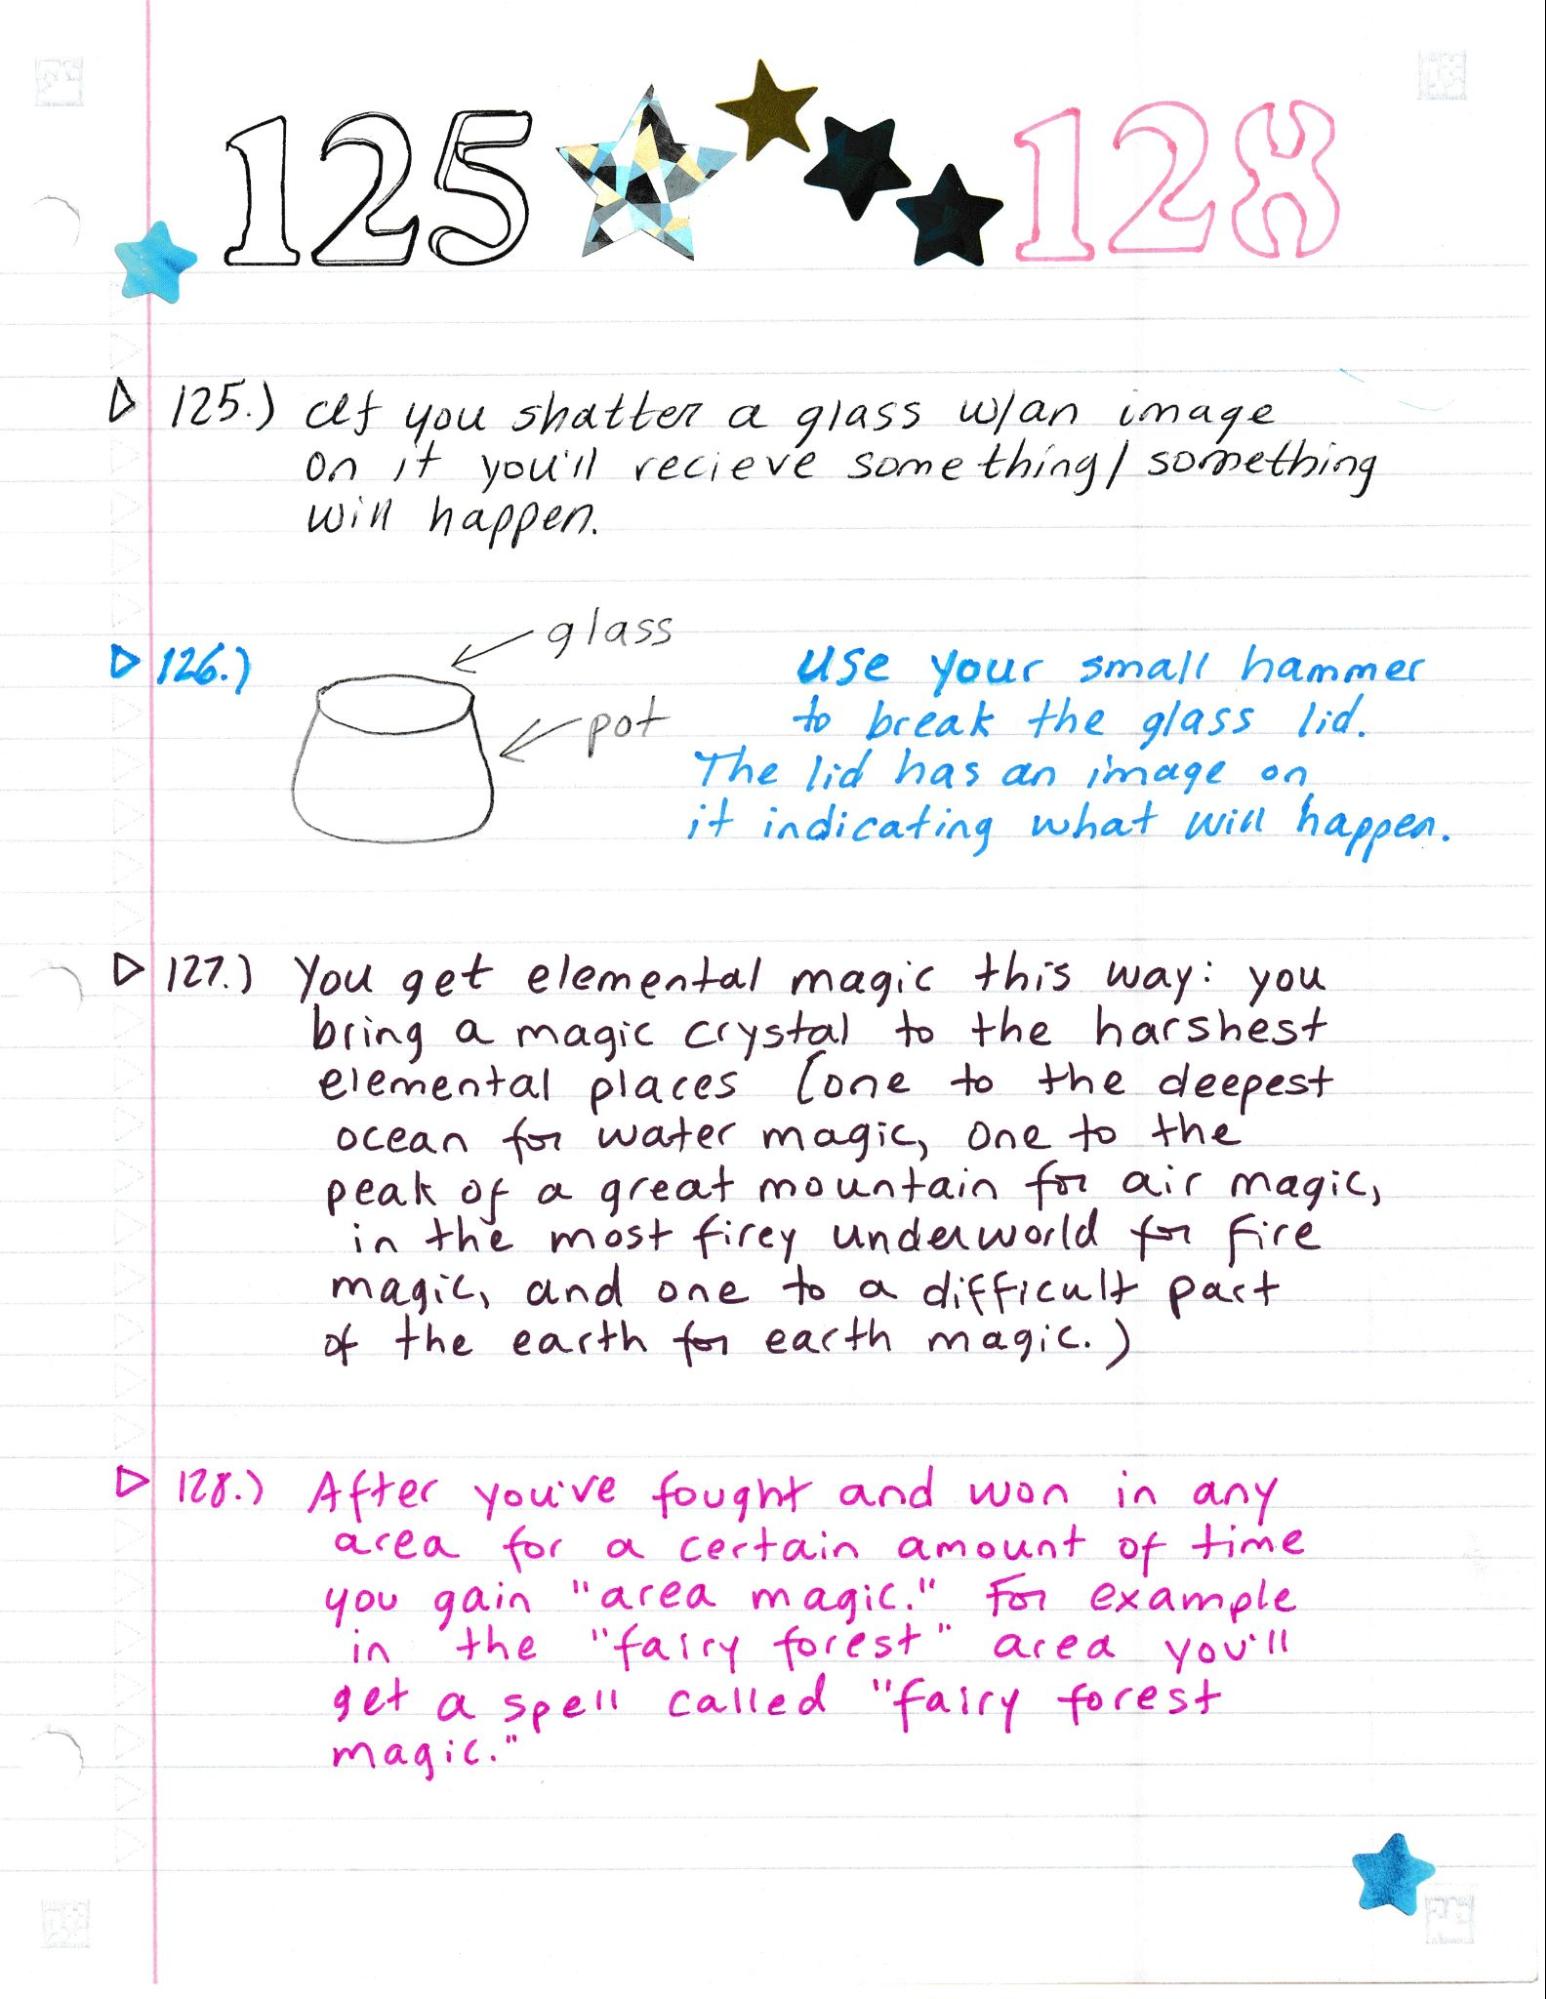 125 128
125.) If you shatter a glass w/an image
on it you'll recieve something/something
will happen.
126.)
glass
pot
use your small hammer
to break the glass lid.
The lid has an image on
it indicating what will happen.
127.) You get elemental magic this way: you
bring a magic crystal to the harshest
elemental places (one to the deepest
ocean for water magic, one to the
peak of a great mountain for air magic,
in the most firey underworld for fire
magic, and one to a difficult part
of the earth for earth magic.)
128.) After you've fought and won in any
area for a certain amount of time
you gain "area magic." For example
in the "fairy forest" area you'll
get a spell called "fairy forest
magic."